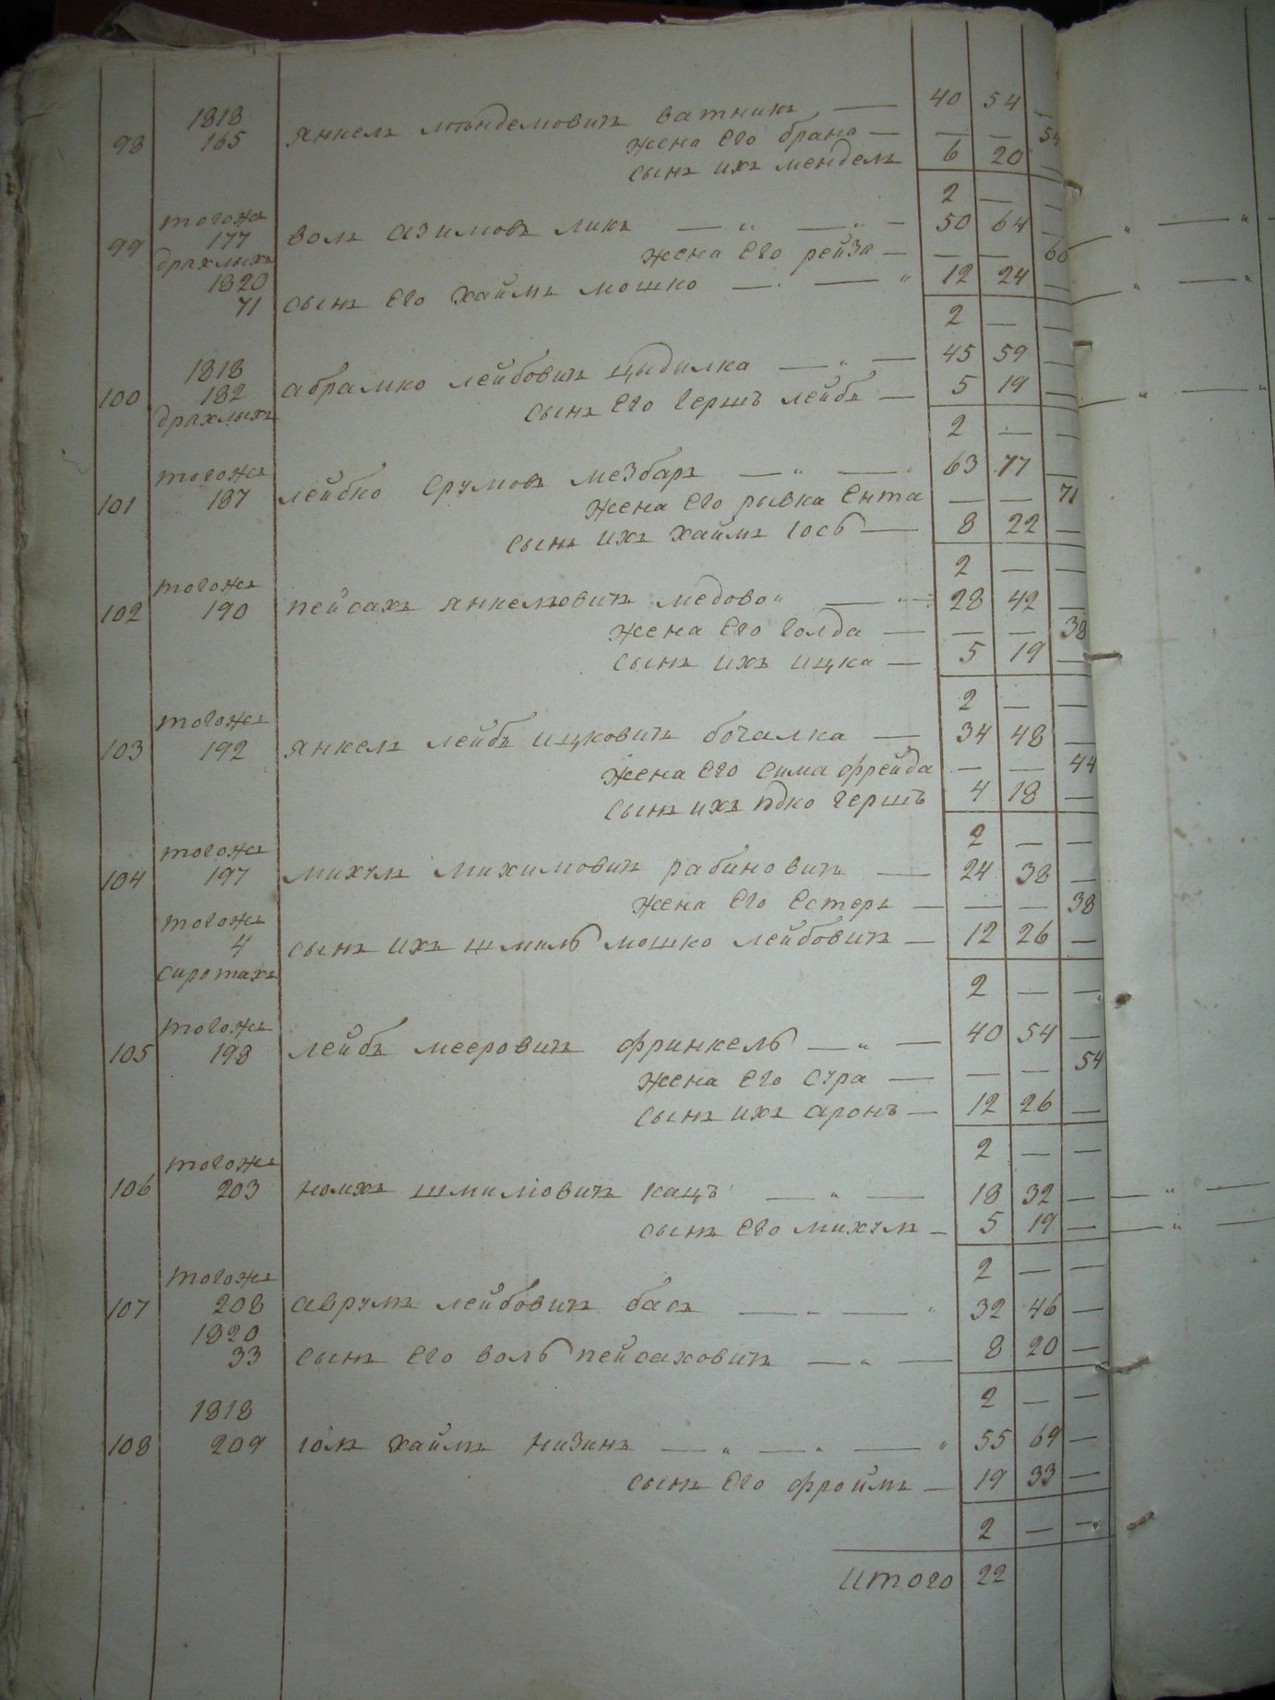 1818 40 54 —
98 165 Янкель Мендемовичъ Ватникъ —
жена его Брана — — — 54
сынъ ихъ Мендель 6 20 —
2 — —
тогожъ
99 177 Воль Азимовъ Ликъ — „ — „ — 50 64 —
дряхлыхъ жена его Рейза — — — 60
1820
71 сынъ его Хаймъ Мошко — . — „ 12 24 —
2 — —
1818
100 182 Абрамко Лейбовичъ Цыдилка — „ — 45 59 —
дряхлыхъ сынъ его Гершъ Лейбъ — 5 19 —
2 — —
тогожъ
101 187 Лейбко Срумовъ Мезбаръ — „ — 63 77 —
жена его Рывка Ента — — 71
сынъ ихъ Хаймъ Іось — 8 22 —
2 — —
тогожъ
102 190 Пейсахъ Янкелювичъ Медовой — 28 42 —
жена его Голда — — — 38
сынъ ихъ Ицка — 5 19 —
2 — —
тогожъ
103 192 Янкель Лейбъ Ицковичъ Бочалка — 34 48 —
жена его Сима Фрейда — — 44
сынъ ихъ Юдко Гершъ 4 18 —
2 — —
тогожъ
104 197 Михуль Михимовичъ Рабиновичъ — 24 38 —
жена его Естеръ — — — 38
тогожъ
4 сынъ ихъ Шмиль Мошко Лейбовичъ — 12 26 —
сиротахъ
2 — —
тогожъ
105 198 Лейбъ Мееровичъ Фринкель — „ — 40 54 —
жена его Сура — — — 54
сынъ ихъ Аронъ — 12 26 —
2 — —
тогожъ
106 203 Шмилiовичъ Кацъ — „ — 18 32 —
сынъ его Михуль — 5 19 —
2 — —
тогожъ
107 208 Аврумъ Лейбовичъ Басъ — „ — „ 32 46 —
1820
33 сынъ его Воль Пейсаховичъ — „ — 8 20 —
2 — —
1818
108 209 Іоль Хаймъ Низинъ — „ — „ — „ 55 69 —
сынъ его Фроимъ — 19 33 —
2 — —
Итого 22